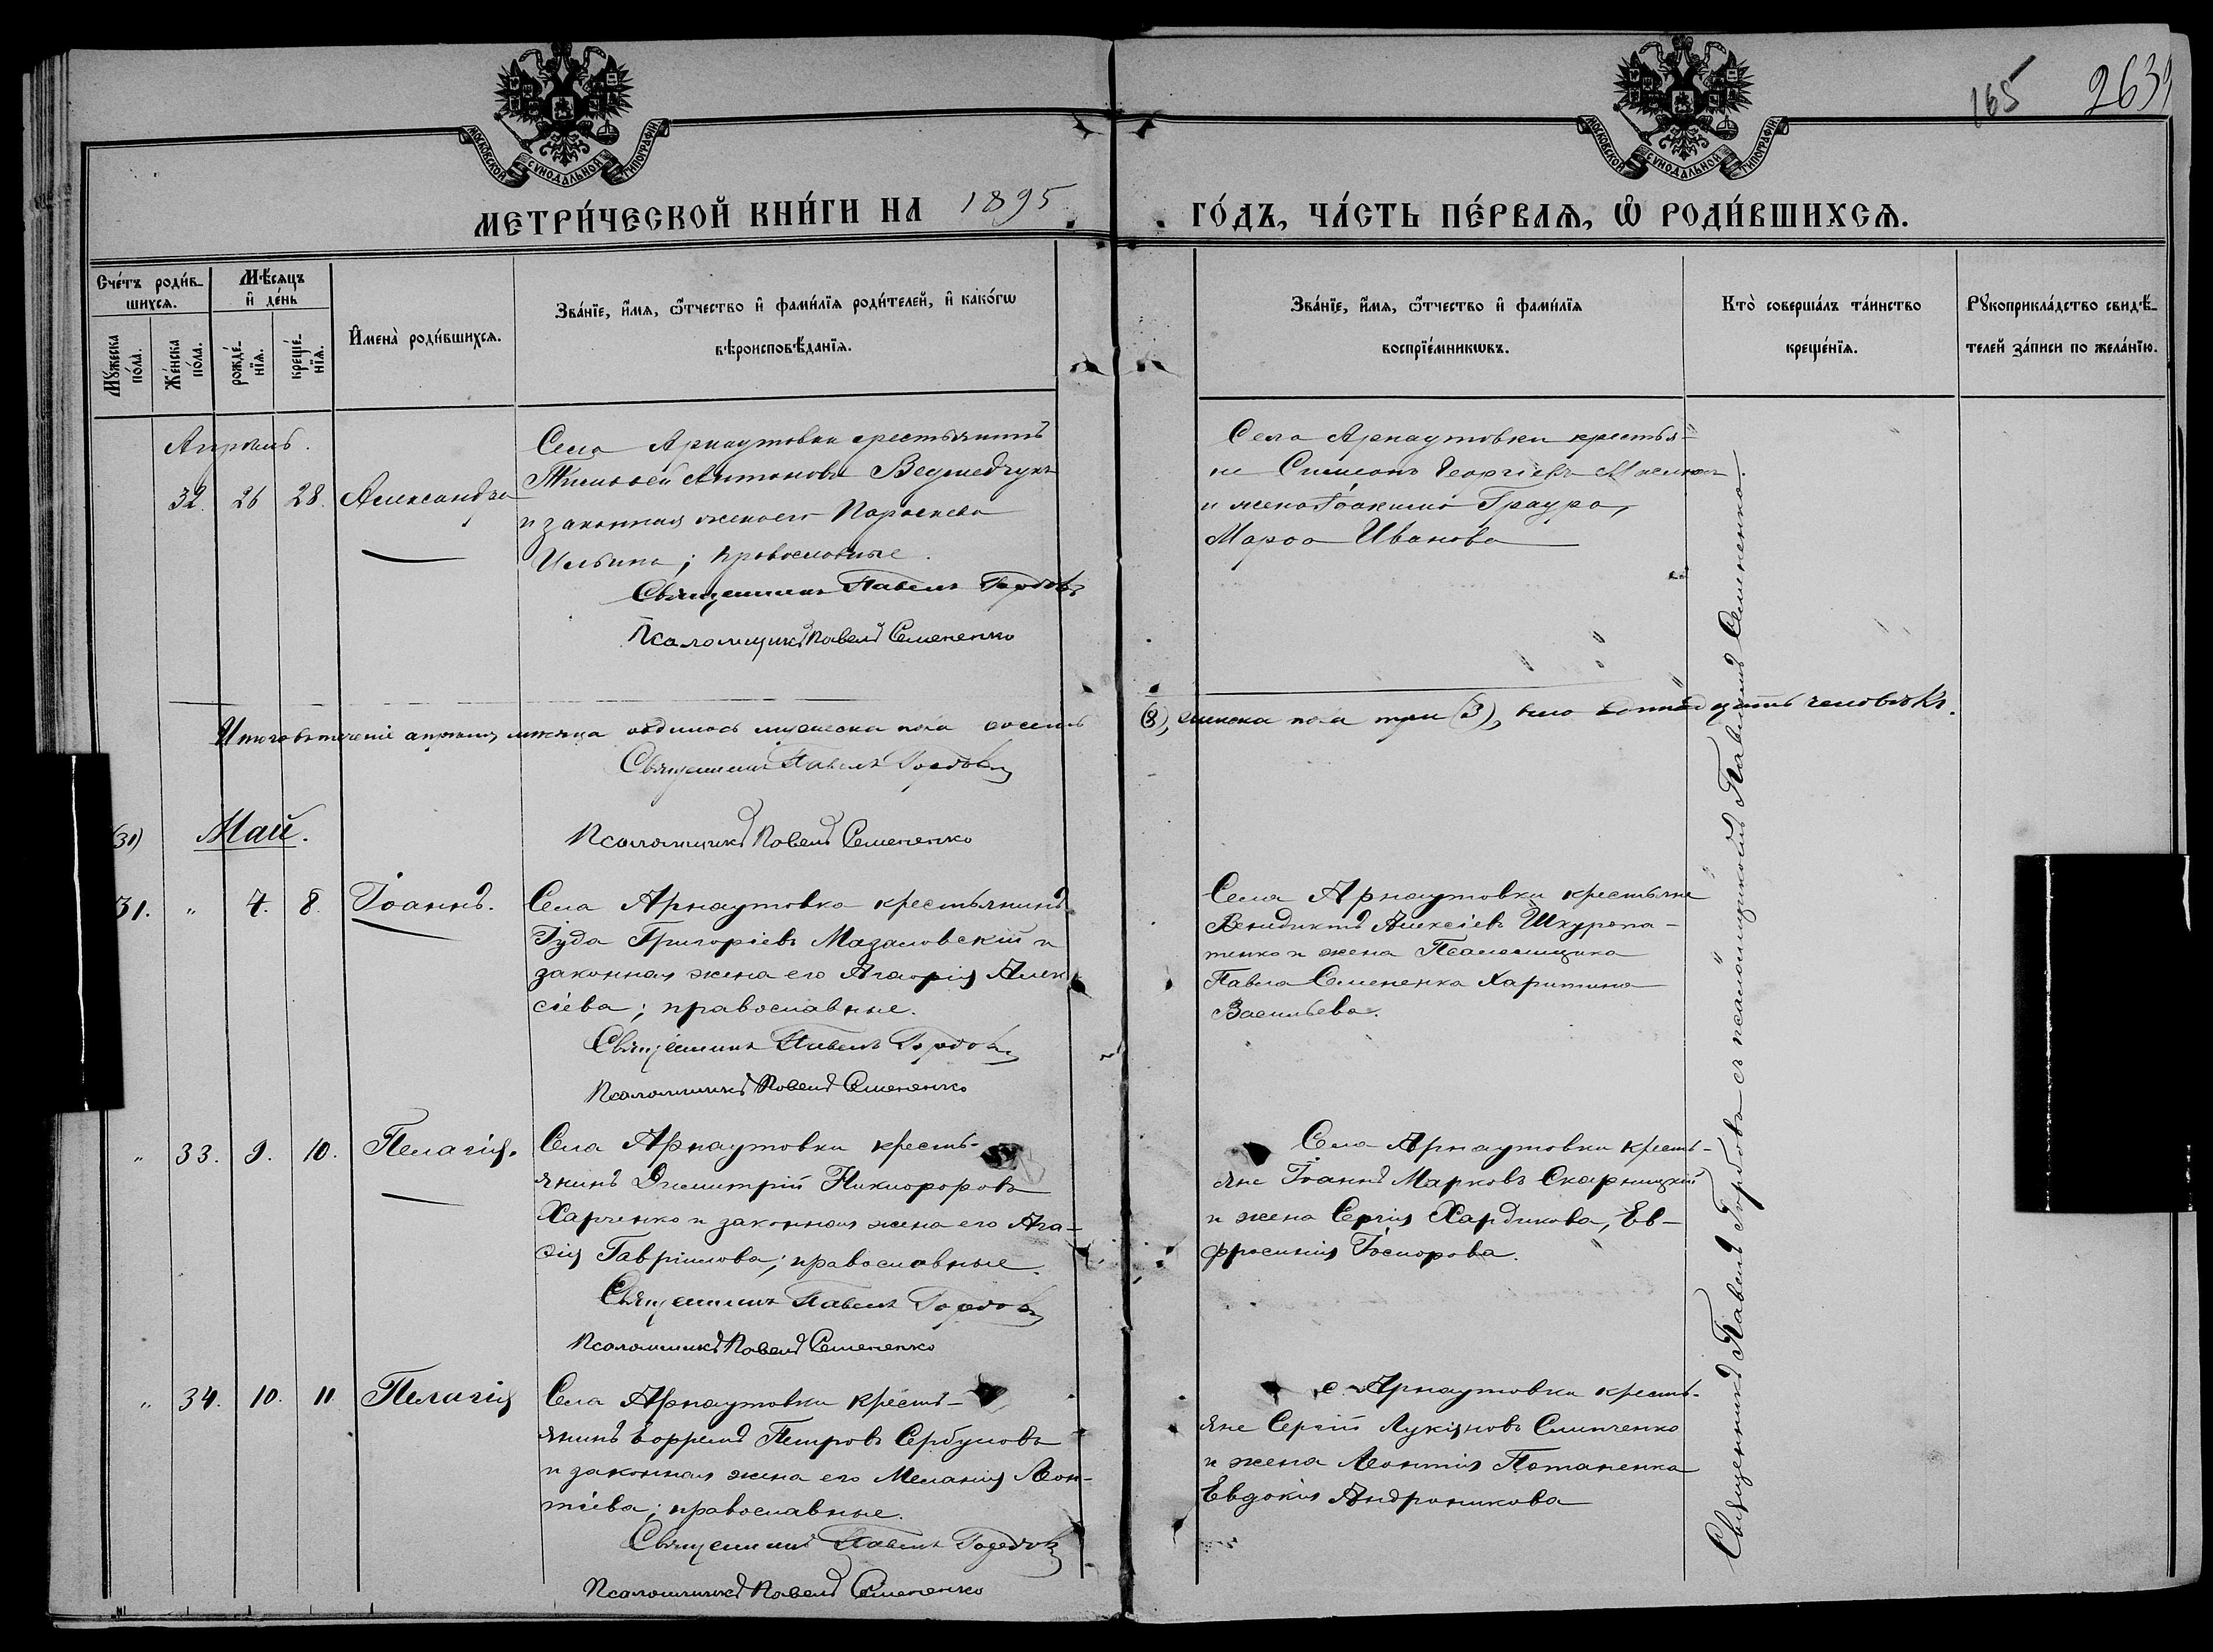 165 2639
МОСКОВСКОЙ СѴНОДАЛЬНОЙ ТИПОГРАФІИ
МОСКОВСКОЙ СѴНОДАЛЬНОЙ ТИПОГРАФІИ
МЕТРИ́ЧЕСКОЙ КНИ́ГИ НА 1895
ГО́ДЪ, ЧА́СТЬ ПЕ́РВАѦ, Ѡ҆ РОДИ́ВШИХСѦ.
Счéтъ роди́в-
шихсѧ.
Мꙋ́жеска по́ла.
Же́нска по́ла.
Мѣ́сѧцъ
и҆ де́нь
рожде́-
нїѧ.
креще́-
нїѧ.
И҆мена̀ роди́вшихсѧ.
Зва́нїе, и҆́мѧ, ѻ҆́тчество и҆ фами́лїѧ роди́телей, и҆ како́гѡ
вѣроисповѣ́данїѧ.
Зва́нїе, и҆́мѧ, ѻ҆́тчество и҆ фами́лїѧ
воспрїе́мникѡвъ.
Кто̀ соверша́лъ та́инство
креще́нїѧ.
Рꙋкоприкла́дство свидѣ́-
телей за́писи по жела́нїю.
Апрѣль.
32. 26 28. Александра
Села Арнаутовки крестьянинъ
Антоновъ Ведмедчукъ
и законная жена его Параскева
Ильина; православные.
Священникъ Павелъ Горбовъ
Псаломщикъ Павелъ Семененко
Села Арнаутовки крестья-
не Симеонъ Георгіевъ
и жена Іоакима Граура,
Марѳа Иванова
Итого въ теченіе апрѣля мѣсяца родилось мужеска пола восемь
(8), женска пола три (3), всего одиннадцать человѣкъ.
Священникъ Павелъ Горбовъ
Псаломщикъ Павелъ Семененко
(31) Май.
31. " 7. 8. Іоаннъ.
Села Арнаутовка крестьянинъ
Іуда Григоріевъ Мазаловскій и
законная жена его Агаѳія Алек-
сіева; православные.
Священникъ Павелъ Горбовъ
Псаломщикъ Павелъ Семененко
Села Арнаутовки крестьяне
Венидиктъ Алексіевъ Шкуропа-
тенко и жена Псаломщика
Павла Семененка Харитина
Васильева.
" 33. 9. 10. Пелагія.
Села Арнаутовки кресть-
янинъ Димитрій Никифоровъ
Харченко и законная жена его Ага-
ѳія Гавріилова; православные.
Священникъ Павелъ Горбовъ
Псаломщикъ Павелъ Семененко
Села Арнаутовки кресть-
яне Іоаннъ Марковъ Скарницкій
и жена Сергія Хардикова, Ев-
фросинія
" 34. 10. 11 Пелагія
Села Арнаутовки кресть-
янинъ Петровъ Сербуловъ
и законная жена его Меланія Леон-
тіева; православные.
Священникъ Павелъ Горбовъ
Псаломщикъ Павелъ Семененко
с. Арнаутовки кресть-
яне Сергій Лукіановъ Слипченко
и жена Леонтія Потапенка
Евдокія Андроникова
Священникъ Павелъ Горбовъ съ псаломщикомъ Павломъ Семененко.